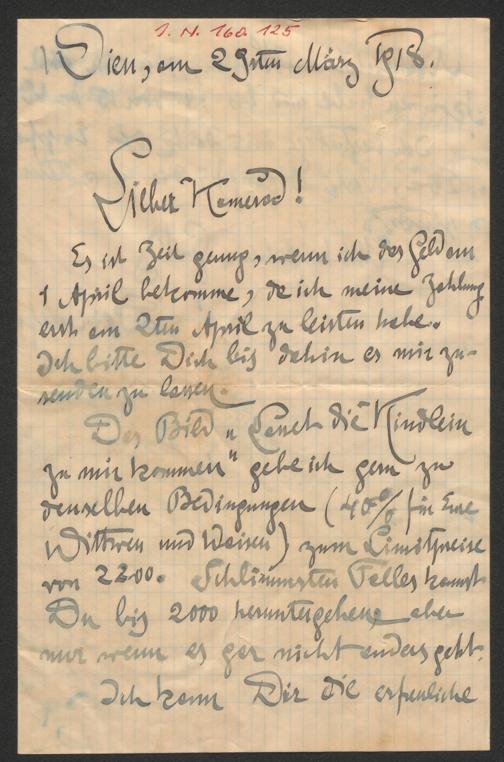 I. N. 160.125
Wien, am 29sten März 1918.
Lieber Kamerad!
Es ist Zeit genug, wenn ich das Geld am
1 April bekomme, da ich meine Zahlung
erst am 2ten April zu leisten habe.
Ich bitte Dich bis dahin es mir zu-
senden zu lassen.
Das Bild „Lasset die Kindlein
zu mir kommen" gebe ich gern zu
denselben Bedingungen (40% für Eure
Wittwen und Waisen) zum Limitpreise
von 2200. Schlimmsten Falles kannst
Du bis 2000 heruntergehen, aber
nur wenn es gar nicht anders geht.
Ich kann Dir die erfreuliche